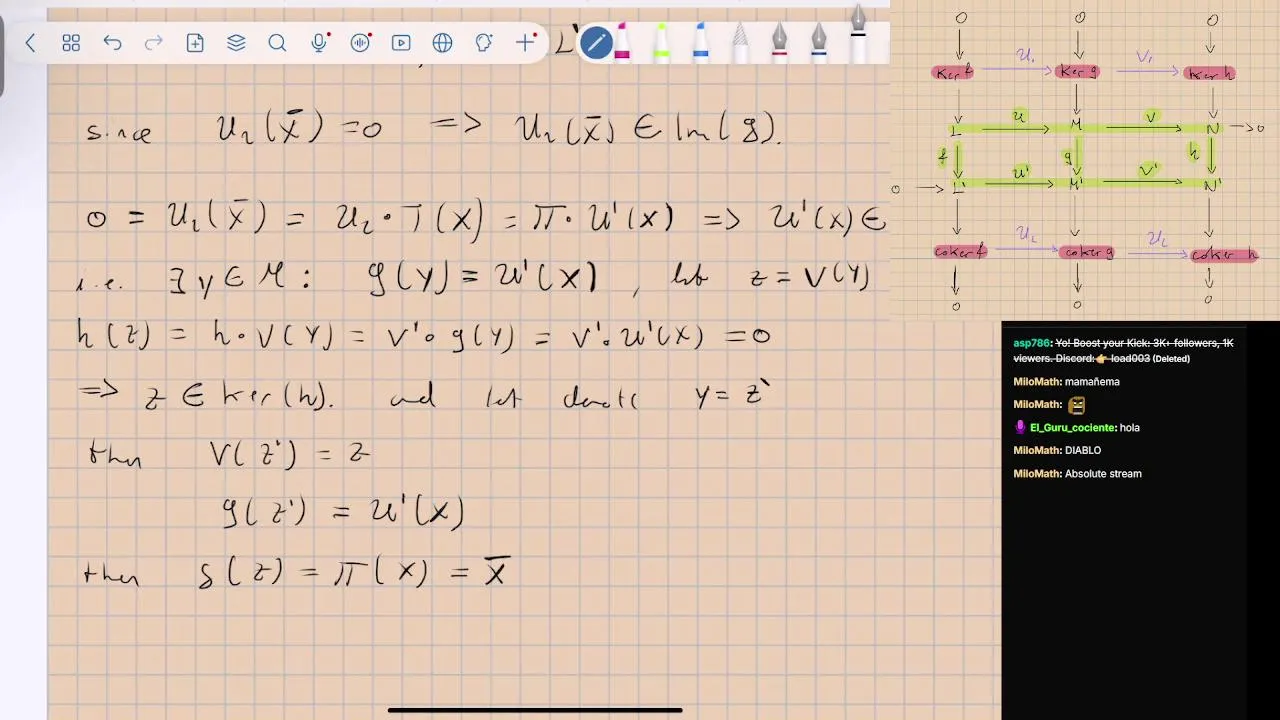 L'
since u₂(x̄) = 0 => u₂(x̄) ∈ Im(g).
0 = u₂(x̄) = u₂∘π(x) = π∘u'(x) => u'(x) ∈
i.e. ∃ y ∈ M : g(y) = u'(x) , let z = v(y)
h(z) = h∘v(y) = v'∘g(y) = v'∘u'(x) = 0
=> z ∈ ker(h). and let denote y = z'
then v(z') = z
g(z') = u'(x)
then δ(z) = π(x) = x̄
0 0 0
ker f u₁ ker g v₁ ker h
L u M v N 0
f g h
0 L' u' M' v' N'
coker f u₂ coker g u₂ coker h
0 0 0
asp786: Yo! Boost your Kick: 3K+ followers, 1K
viewers. Discord: 👉 load003 (Deleted)
MiloMath: mamañema
MiloMath:
El_Guru_cociente: hola
MiloMath: DIABLO
MiloMath: Absolute stream